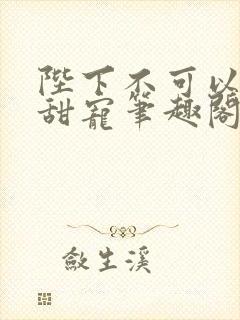 陛下不可以
甜寵筆趣閣
斂生溪